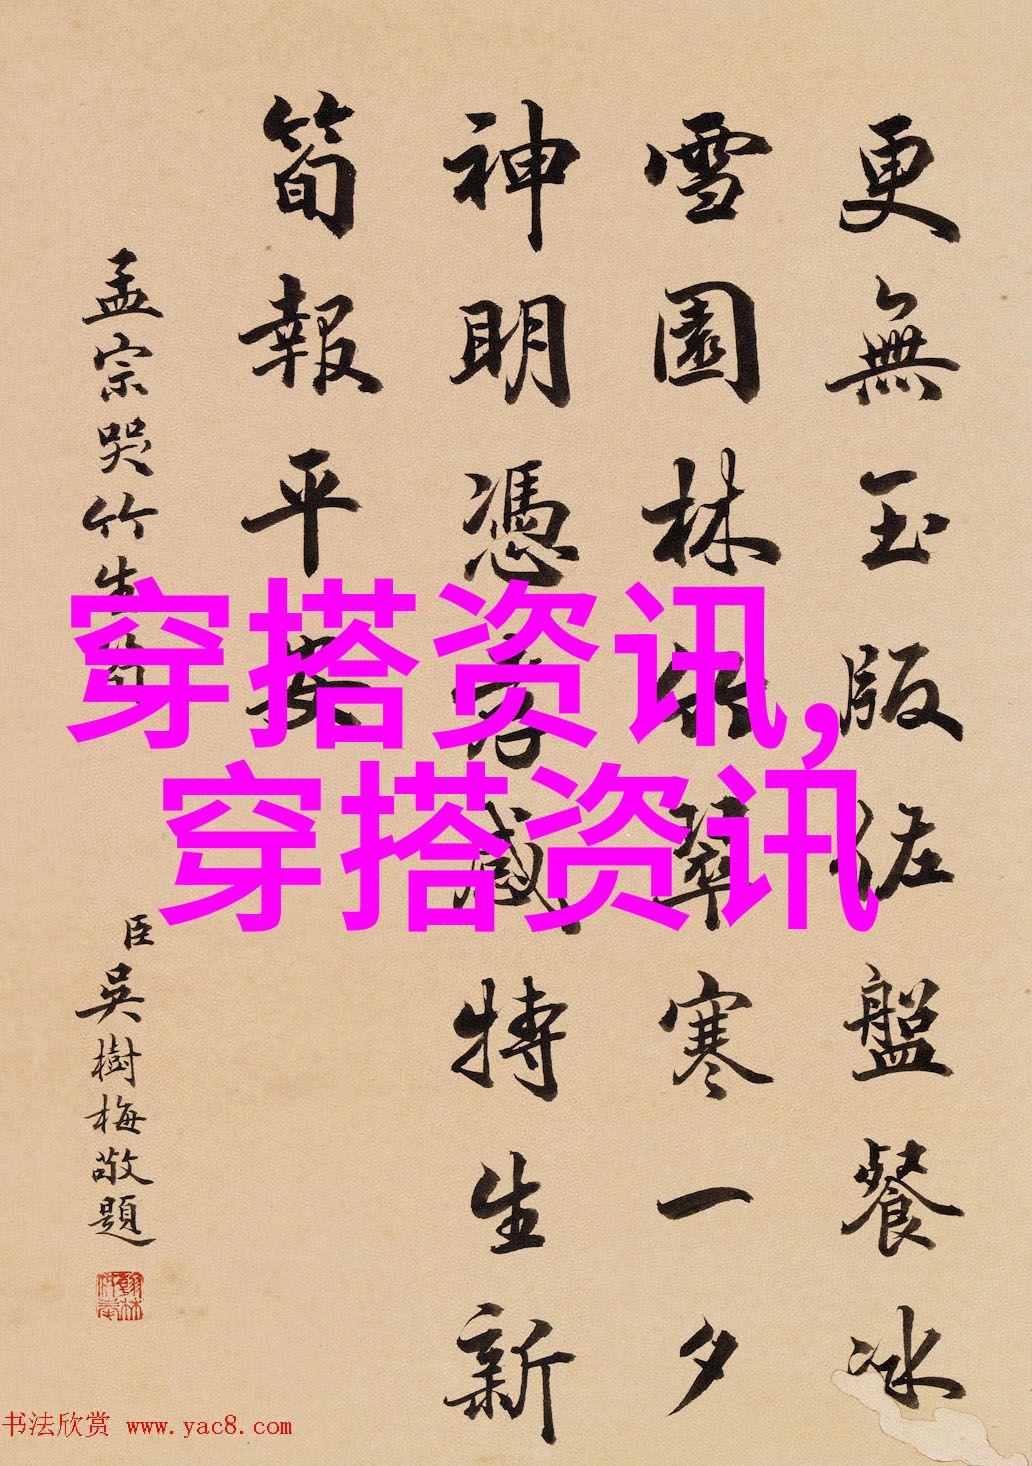 更無玉版佐盤餐冰
雪園林翠寒一夕
神明憑孝感特生新
筍報平安
孟宗哭竹生筍
臣吳樹梅敬題
穿搭资讯,
穿搭资讯
书法欣赏 www.yac8.com